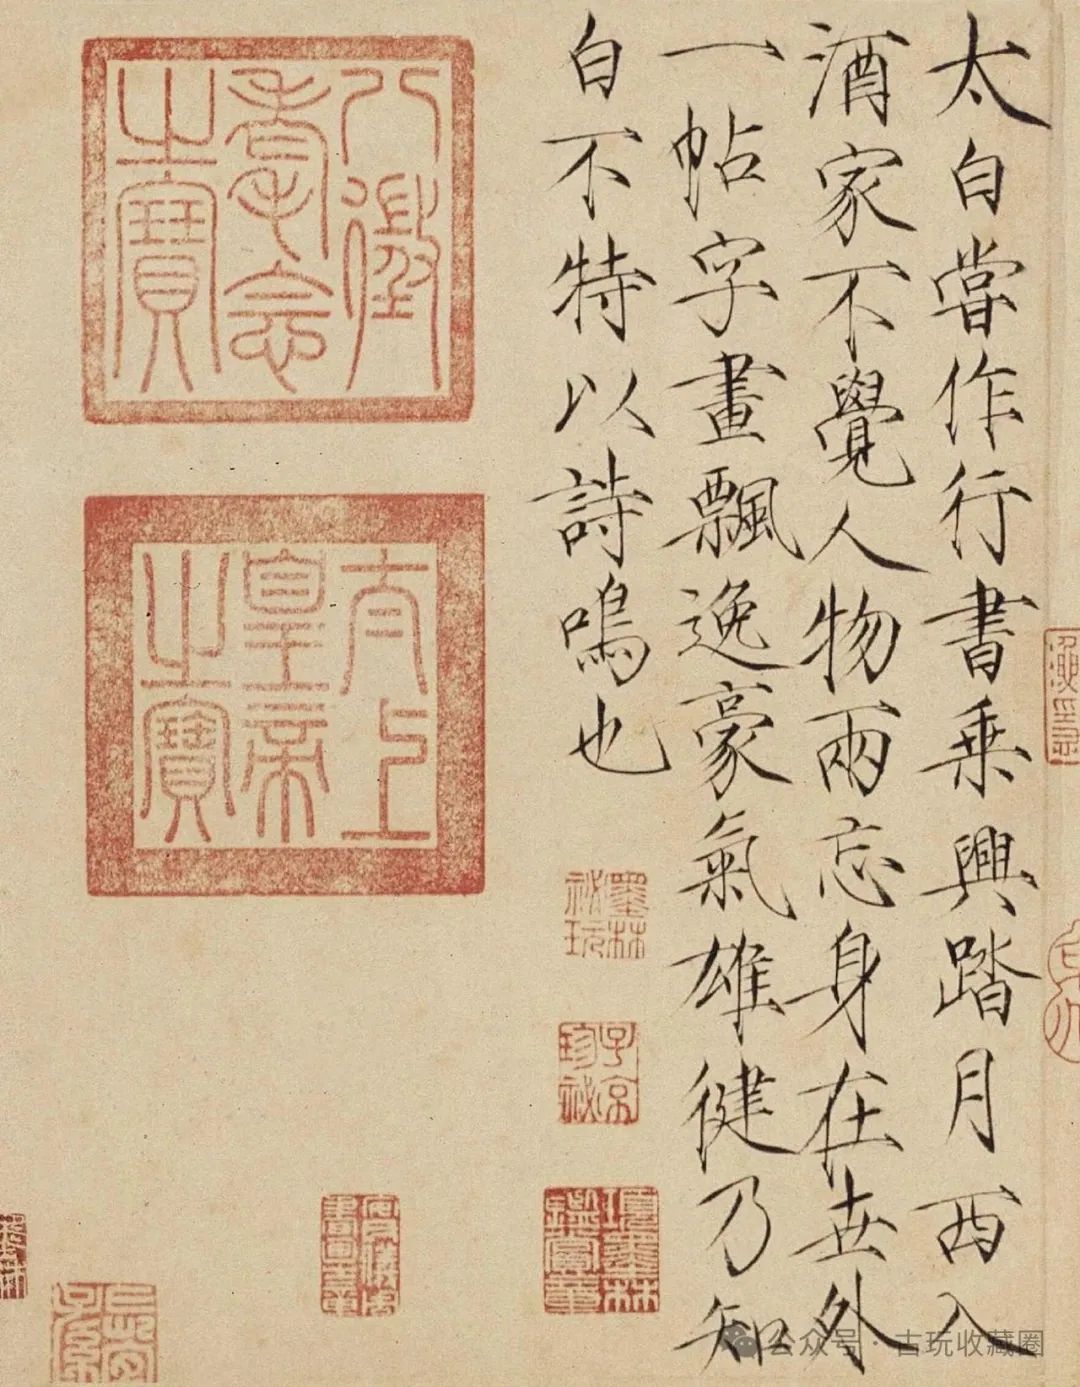 太白嘗作行書乘興踏月西入
酒家不覺人物兩忘身在世外
一帖字畫飄逸豪氣雄健乃知
白不特以詩鳴也
墨林祕玩
子京珍祕
項墨林鑑賞章
八徵耄念之寶
太上皇帝之寶
公众号·古玩收藏圈